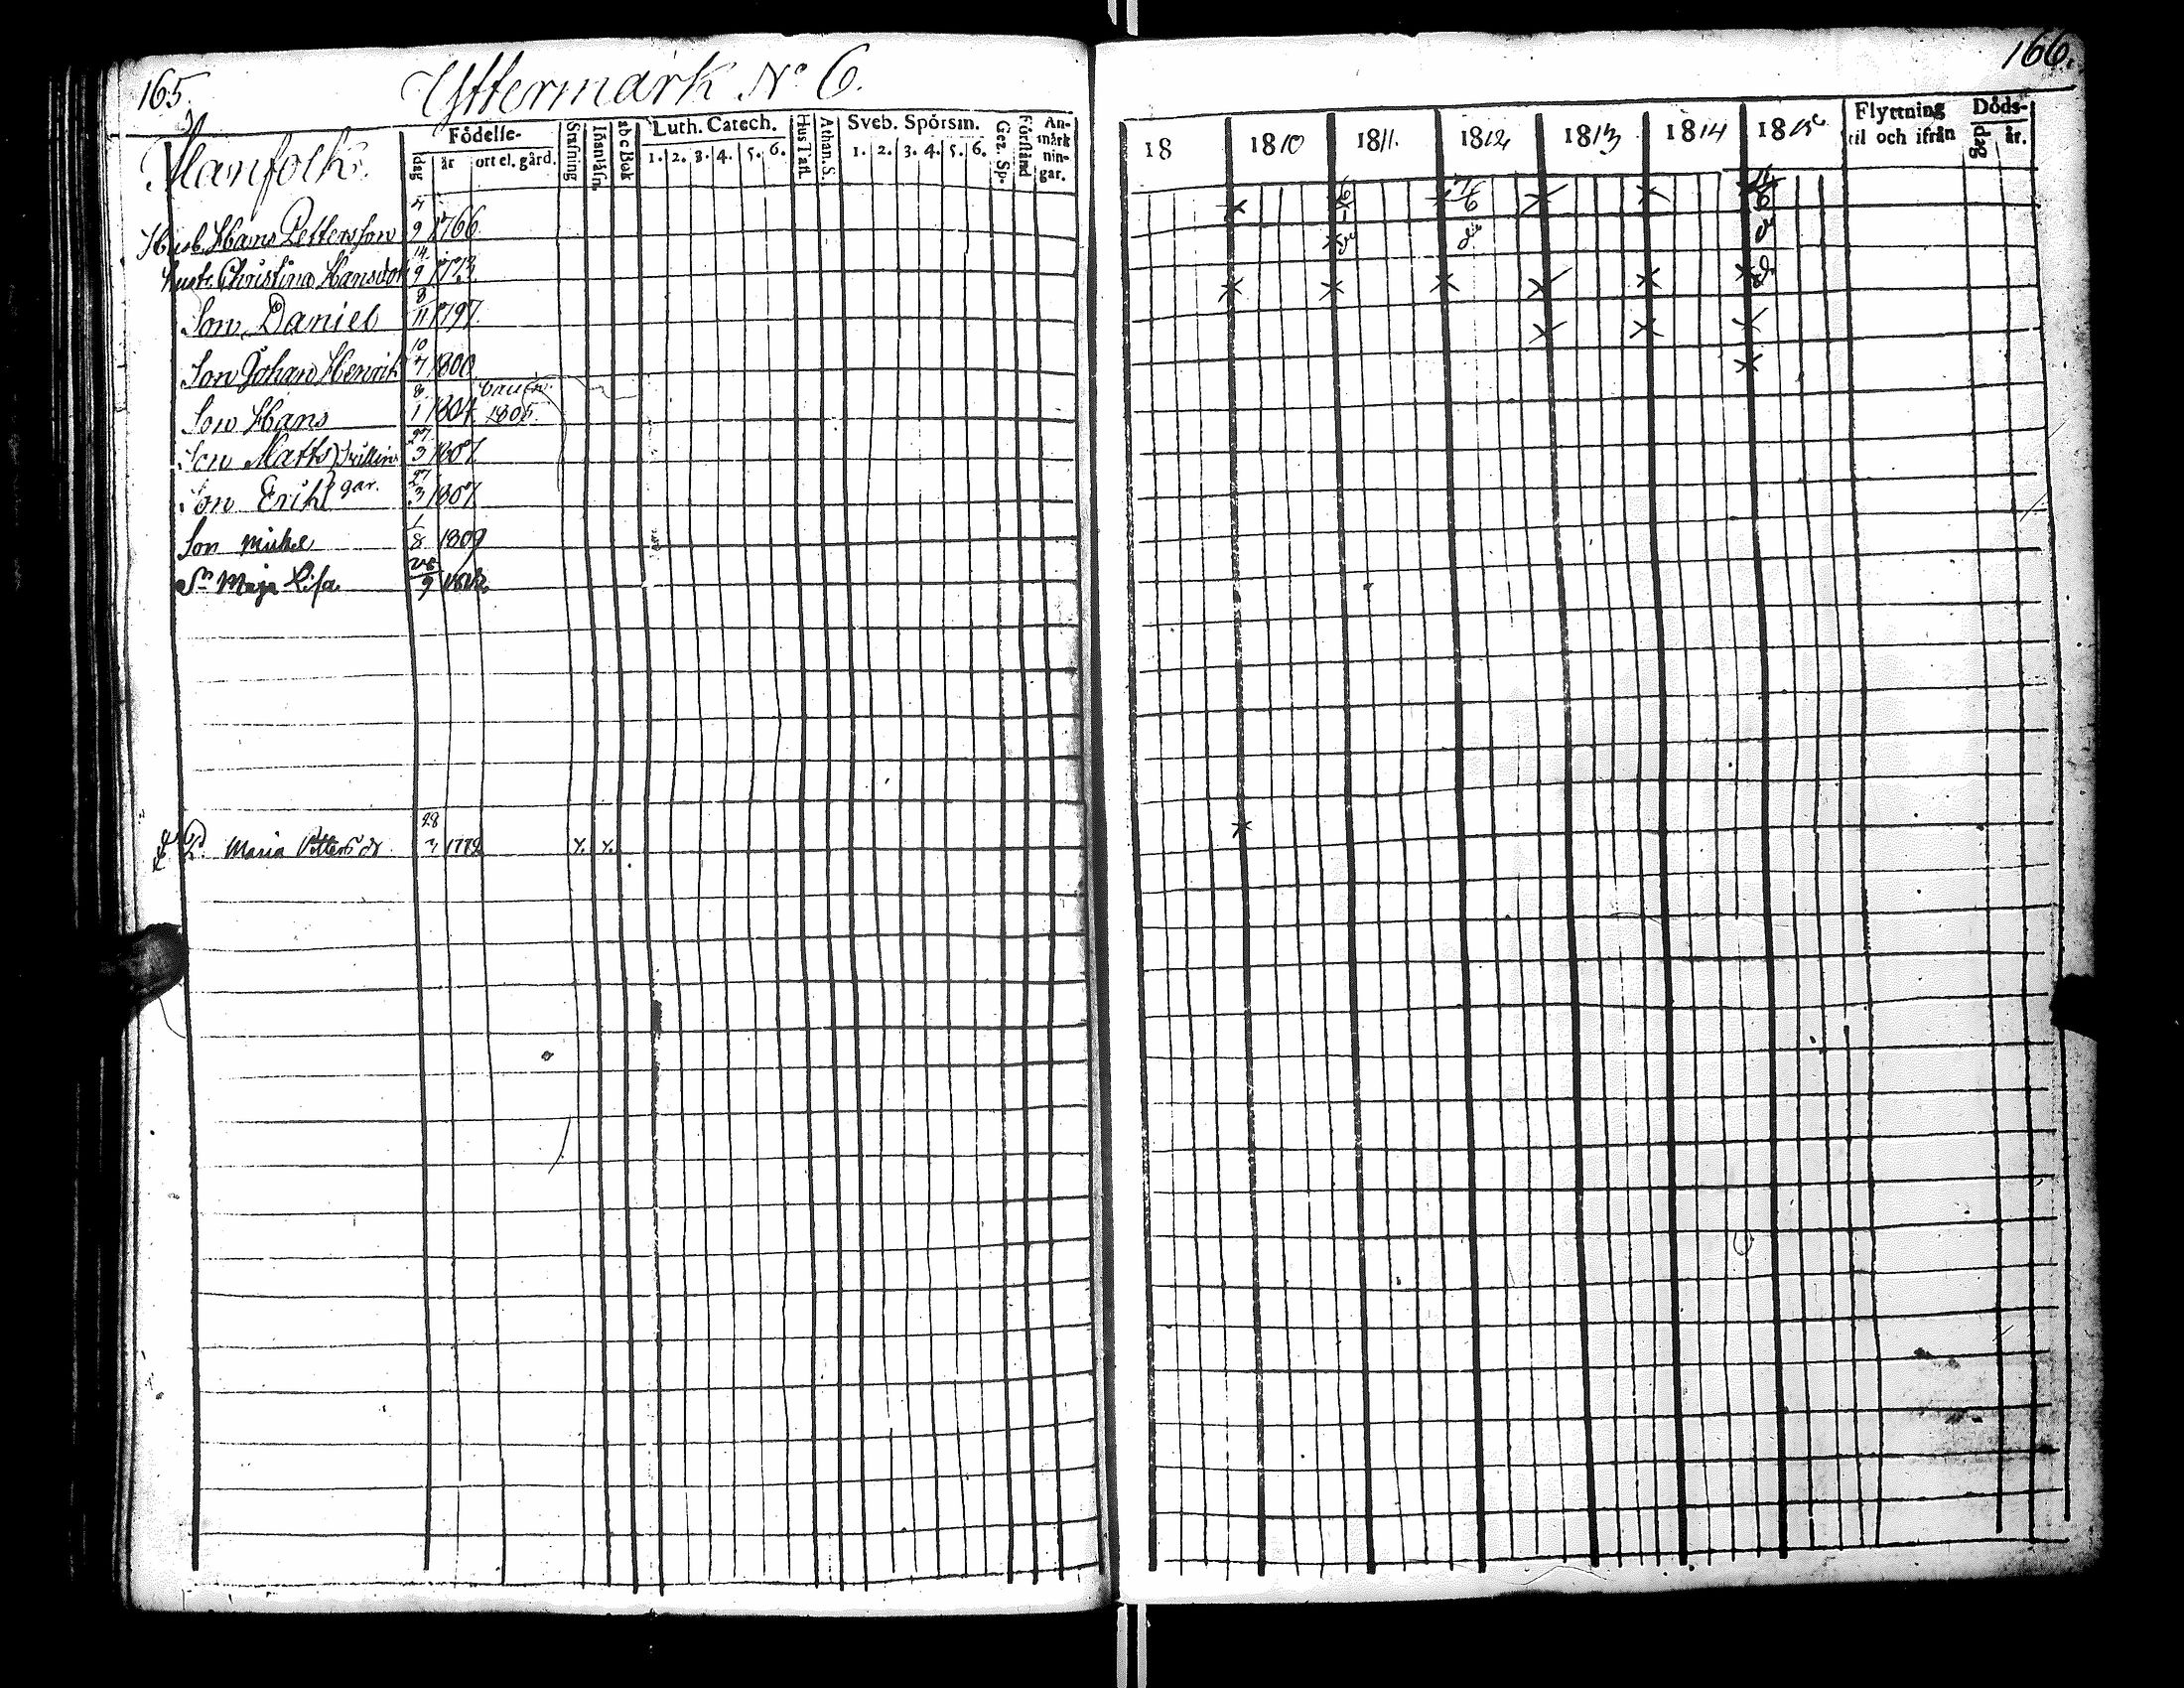 165.
Yttermark No 6.
166.
Manfolk.
Födelse-
dag
år
ort el. gård.
Stafning
Inanläsn.
abc Bok
Luth. Catech.
1. 2. 3. 4. 5. 6.
Hus Tafl.
Athan. S.
Sveb. Spörsm.
1. 2. 3. 4. 5. 6.
Gez. Sp.
Förstånd
An-
märk
nin-
gar.
18
1810
1811.
1812
1813
1814
1815
Flyttning
til och ifrån
Döds-
dag
år.
Husb. Hans Pettersson 9 1766
hustr. Christina Hansdot 14/9 1773
Son Daniel 8/11 1797.
Son Johan Henrik 10/7 1800
Son Hans 8/1 1804 1805.
Son Matts Trillin 27/3 1807
Son Erik gar. 27/3 1807
Son Mickel 1/8 1809
Maja Lisa 26/9 1812
Maria Petters dr 28 1772